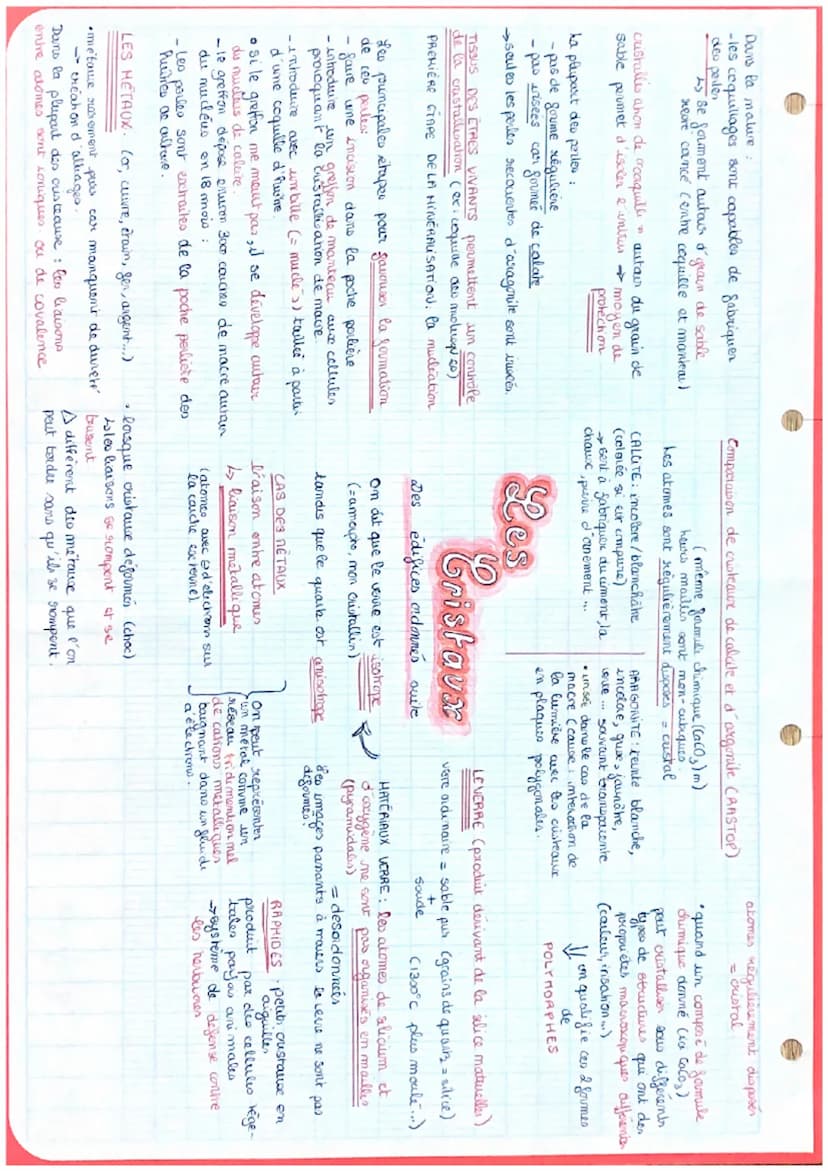 Dans la nature :
- les coquillages sont capables de fabriquer
des perles
↳ se forment autour d'grain de sable
nacre (entre coquille et manteau)
cristallisation de autour du grain de
sable permet d'isoler → moyen de
protection
La plupart des perles :
- pas de forme régulière
- pas irisées car formée de calcite
→ seules les perles recouvertes d'aragonite sont irisées.
TISSUS DES ÊTRES VIVANTS permettent un contrôle
de la cristallisation (ex : coquille des mollusques)
PREMIÈRE ÉTAPE DE LA MINÉRALISATION : la nucléation
Les principales étapes pour favoriser la formation
de ces perles :
- faire une incision dans la poche perlière
- introduire un greffon de manteau aux cellules
provoquant la cristallisation de nacre
- introduire avec une bille (= nucléus) taillée à partir
d'une coquille d'huître.
• si le greffon ne meurt pas, il se développe autour
du nucléus de calcite.
- le greffon dépose environ 300 couches de nacre autour
du nucléus en 18 mois :
- Les perles sont extraites de la poche perlière des
huîtres de culture.
LES MÉTAUX : (or, cuivre, étain, fer, argent...)
• métaux rarement purs car manquent de dureté
→ création d'alliages.
Dans la plupart des cristaux : les liaisons
entre atomes sont ioniques ou de covalence
Comparaison de cristaux de calcite et d'argonite (RASTOP)
(même formule chimique (CaCO3) m)
leurs mailles sont non-cubiques
Les atomes sont régulièrement disposés = cristal
CALCITE : incolore/blanchâtre
(colorée si impure)
→ sert à fabriquer du ciment, la
chaux, pierre d'ornement ...
ARAGONITE : teinte blanche,
incolore, grise, jaunâtre,
verte ... souvent transparente
• irisée dans le cas de la
nacre (cause : interaction de
la lumière avec les cristaux
en plaques polygonales.
Les
Cristaux
Des édifices ordonnés
On dit que le verre est isotrope
(= amorphe, non cristallin)
tandis que le quartz est anisotrope
CAS DES MÉTAUX
liaison entre atomes
↳ liaison métallique
(atomes avec d'électrons sur
la couche externe)
On peut représenter
un métal comme un
réseau tridimentionnel
de cations métalliques
baignant dans un fluide
d'électrons.
• lorsque cristaux déformés (choc)
↳ les liaisons se rompent et se
brisent
⚠ différent des métaux que l'on
peut tordre sans qu'ils se rompent.
atomes régulièrement disposés
= cristal
• quand un composé de formule
chimique donné (ici CaCO3)
peut cristalliser sous différents
types de structures qui ont des
propriétés macroscopiques différentes
(couleur, irisation...)
↓ on qualifie ces 2 formes
de
POLYMORPHES
LE VERRE (produit dérivant de la silice naturelles)
verre ordinaire = sable pur (grains de quartz = silice)
+
soude (1300°C plus moulé...)
MATÉRIAUX VERRE : les atomes de silicium et
d'oxygène ne sont pas organisés en mailles
(pyramidales)
= desordonnées
Les images passants à travers le verre ne sont pas
déformés !
RAPHIDES : petits cristaux en
aiguilles
produit par des cellules végé-
tales par animales
→ système de défense contre
les herbivores